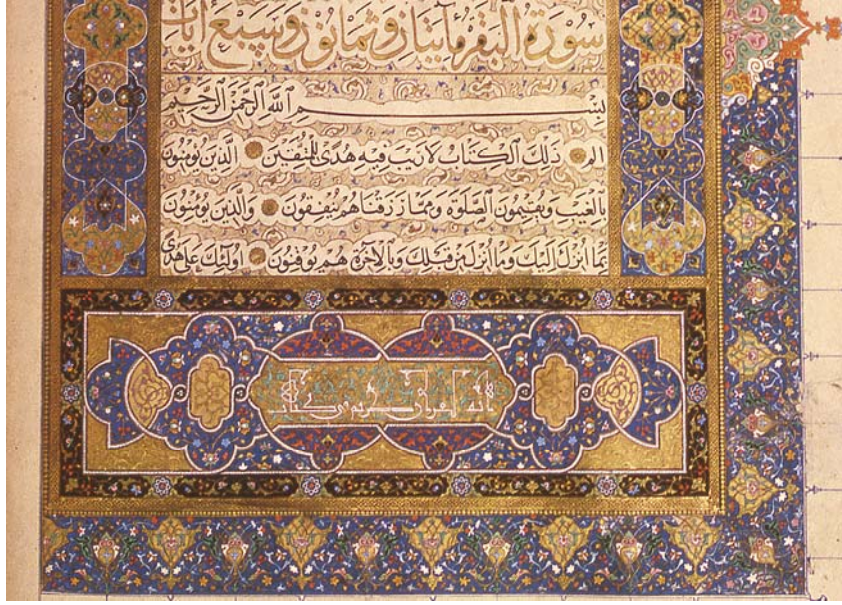 سُورَةُ الْبَقَرَة مأيتان وثمانون وسبع آيات
بِسْمِ اللَّهِ الرَّحْمٰنِ الرَّحِيمِ
الم ذٰلِكَ الْكِتَابُ لَا رَيْبَ فِيهِ هُدًى لِلْمُتَّقِينَ الَّذِينَ يُؤْمِنُونَ
بِالْغَيْبِ وَيُقِيمُونَ الصَّلٰوةَ وَمِمَّا رَزَقْنَاهُمْ يُنْفِقُونَ وَالَّذِينَ يُؤْمِنُونَ
بِمَا اُنْزِلَ اِلَيْكَ وَمَا اُنْزِلَ مِنْ قَبْلِكَ وَبِالْآخِرَةِ هُمْ يُوقِنُونَ اُولٰئِكَ عَلَى هُدًى
انه لقرآن كريم في كتاب